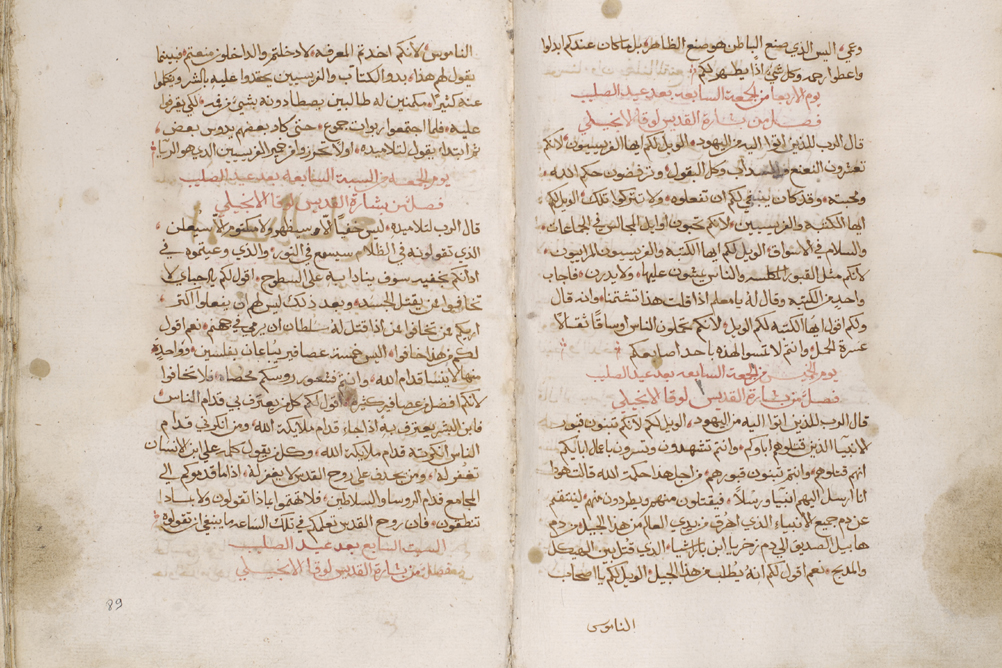 وعمي، اليس الذي صنع الباطن هو صنع الظاهر، بل ما كان عندكم ابدلوا
واعطوا رحمه وكل شي اذا يطهر لكم
يوم الاربعا من الجمعة السابعه بعد عيد الصليب
فصل من بشارة القديس لوقا الانجيلي
قال الرب للذين اتوا اليه من اليهود، الويل لكم ايها الفريسيون، لانكم
تعشرون النعنع والسداب وكل البقول، وترفضون حكم الله،
ومحبته، وقد كان ينبغي لكم ان تفعلوه، ولا تتركوا تلك، الويل لكم
ايها الكتبه والفريسيين، لانكم تحبون اوايل المجالس في الجماعات،
والسلام في الاسواق، الويل لكم ايها الكتبة والفريسيون المرائيون،
لانكم مثل القبور والناس يمشون عليها، ولا يدرون، فاجاب
واحد من الكتبه وقال له يا معلم اذا قلت هذا تشتمنا، وانه قال
ولكم اقول ايها الكتبه لكم الويل، لانكم تحملون الناس اوساقًا ثقالا
عسرة الحمل وانتم لا تمسوا لهذه باحد اصابعكم
يوم الخميس من الجمعة السابعه بعد عيد الصليب
فصل من بشارة القديس لوقا الانجيلي
قال الرب للذين اتوا اليه من اليهود، الويل لكم لانكم تبنون قبور
الانبيا الذين قتلوهم اباوكم، وانتم تشهدون وتسرون باعمال ابائكم
انهم قتلوهم، وانتم تبنون قبورهم، من اجل هذا حكمة الله قالت هوا
انا ارسل اليهم انبيا ورسلاً، فيقتلون منهم ويطردون منهم، لينتقم
عن دم جميع الانبياء الذي اهرق من بدي العالم من هذا الجيل من دم
هابيل الصديق الي دم زخريا ابن باراشيا، الذي قتل بين الهيكل
والمذبح، نعم اقول لكم انه يطلب من هذا الجيل، الويل لكم يا اصحاب
الناموس
الناموس، لانكم اخذتم المعرفه، لا دخلتم والداخلون منعتم، فبينما
يقول لهم هذا، بدوا الكتاب والفريسيين يحقدوا عليه بالشر ويكلموا
عنه كثيرا، مكمنين له طالبين يصطادونه بشي من فيه، لكي يقرفوا
عليه، فلما اجتمعوا ربوات جموع، حتي كاد بعضهم يدوس بعض،
ثم ابتدا، يقول لتلاميذه، اولا تحرزوا من خمير الفريسيين الذي هو الريا،
يوم الجمعه من السبعة السابعه بعد عيد الصليب
فصل من بشارة القديس لوقا الانجيلي
قال الرب لتلاميذه، ليس خفياً الا سيظهر ولا مكتوم الا سيعلن،
الذي تقولونه في الظلام سيسمع في النور، والذي وعيتموه في
اذانكم مخفيه سوف ينادا به علي السطوح، اقول لكم يا احباي لا
تخافوا، من يقتل الجسد، وبعد ذلك ليس لهم ان يفعلوا اكثر،
اريكم من تخافوا، من اذا قتل له سلطان ان يرمي في جهنم، نعم اقول
لكم من هذا خافوا، اليس خمسة عصافير يباعات بفلسين، وواحدة
منها لا ينسا قدام الله، وانتم فشعور روسكم محصاه، فلا تخافوا
لانكم افضل من عصافير كثيرة، اقول لكم كل من يعترف بي قدام الناس،
فابن البشر يعترف به اذا جاء قدام ملايكة الله، ومن انكرني قدام
الناس انكرته قدام ملايكة الله، وكل من يقول كلمه علي ابن الانسان
تغفر له، ومن جدف علي روح القدس لا يغفر له، اذا ما قدموكم الي
المجامع قدام الروسا والسلاطين، فلا تهتموا بماذا تقولون ولا بماذا
تنطقون، فان روح القدس يعلمكم في تلك الساعه ما ينبغي ان تقولوه
السبت السابع بعد عيد الصليب
فصل من بشارة القديس لوقا الانجيلي
89